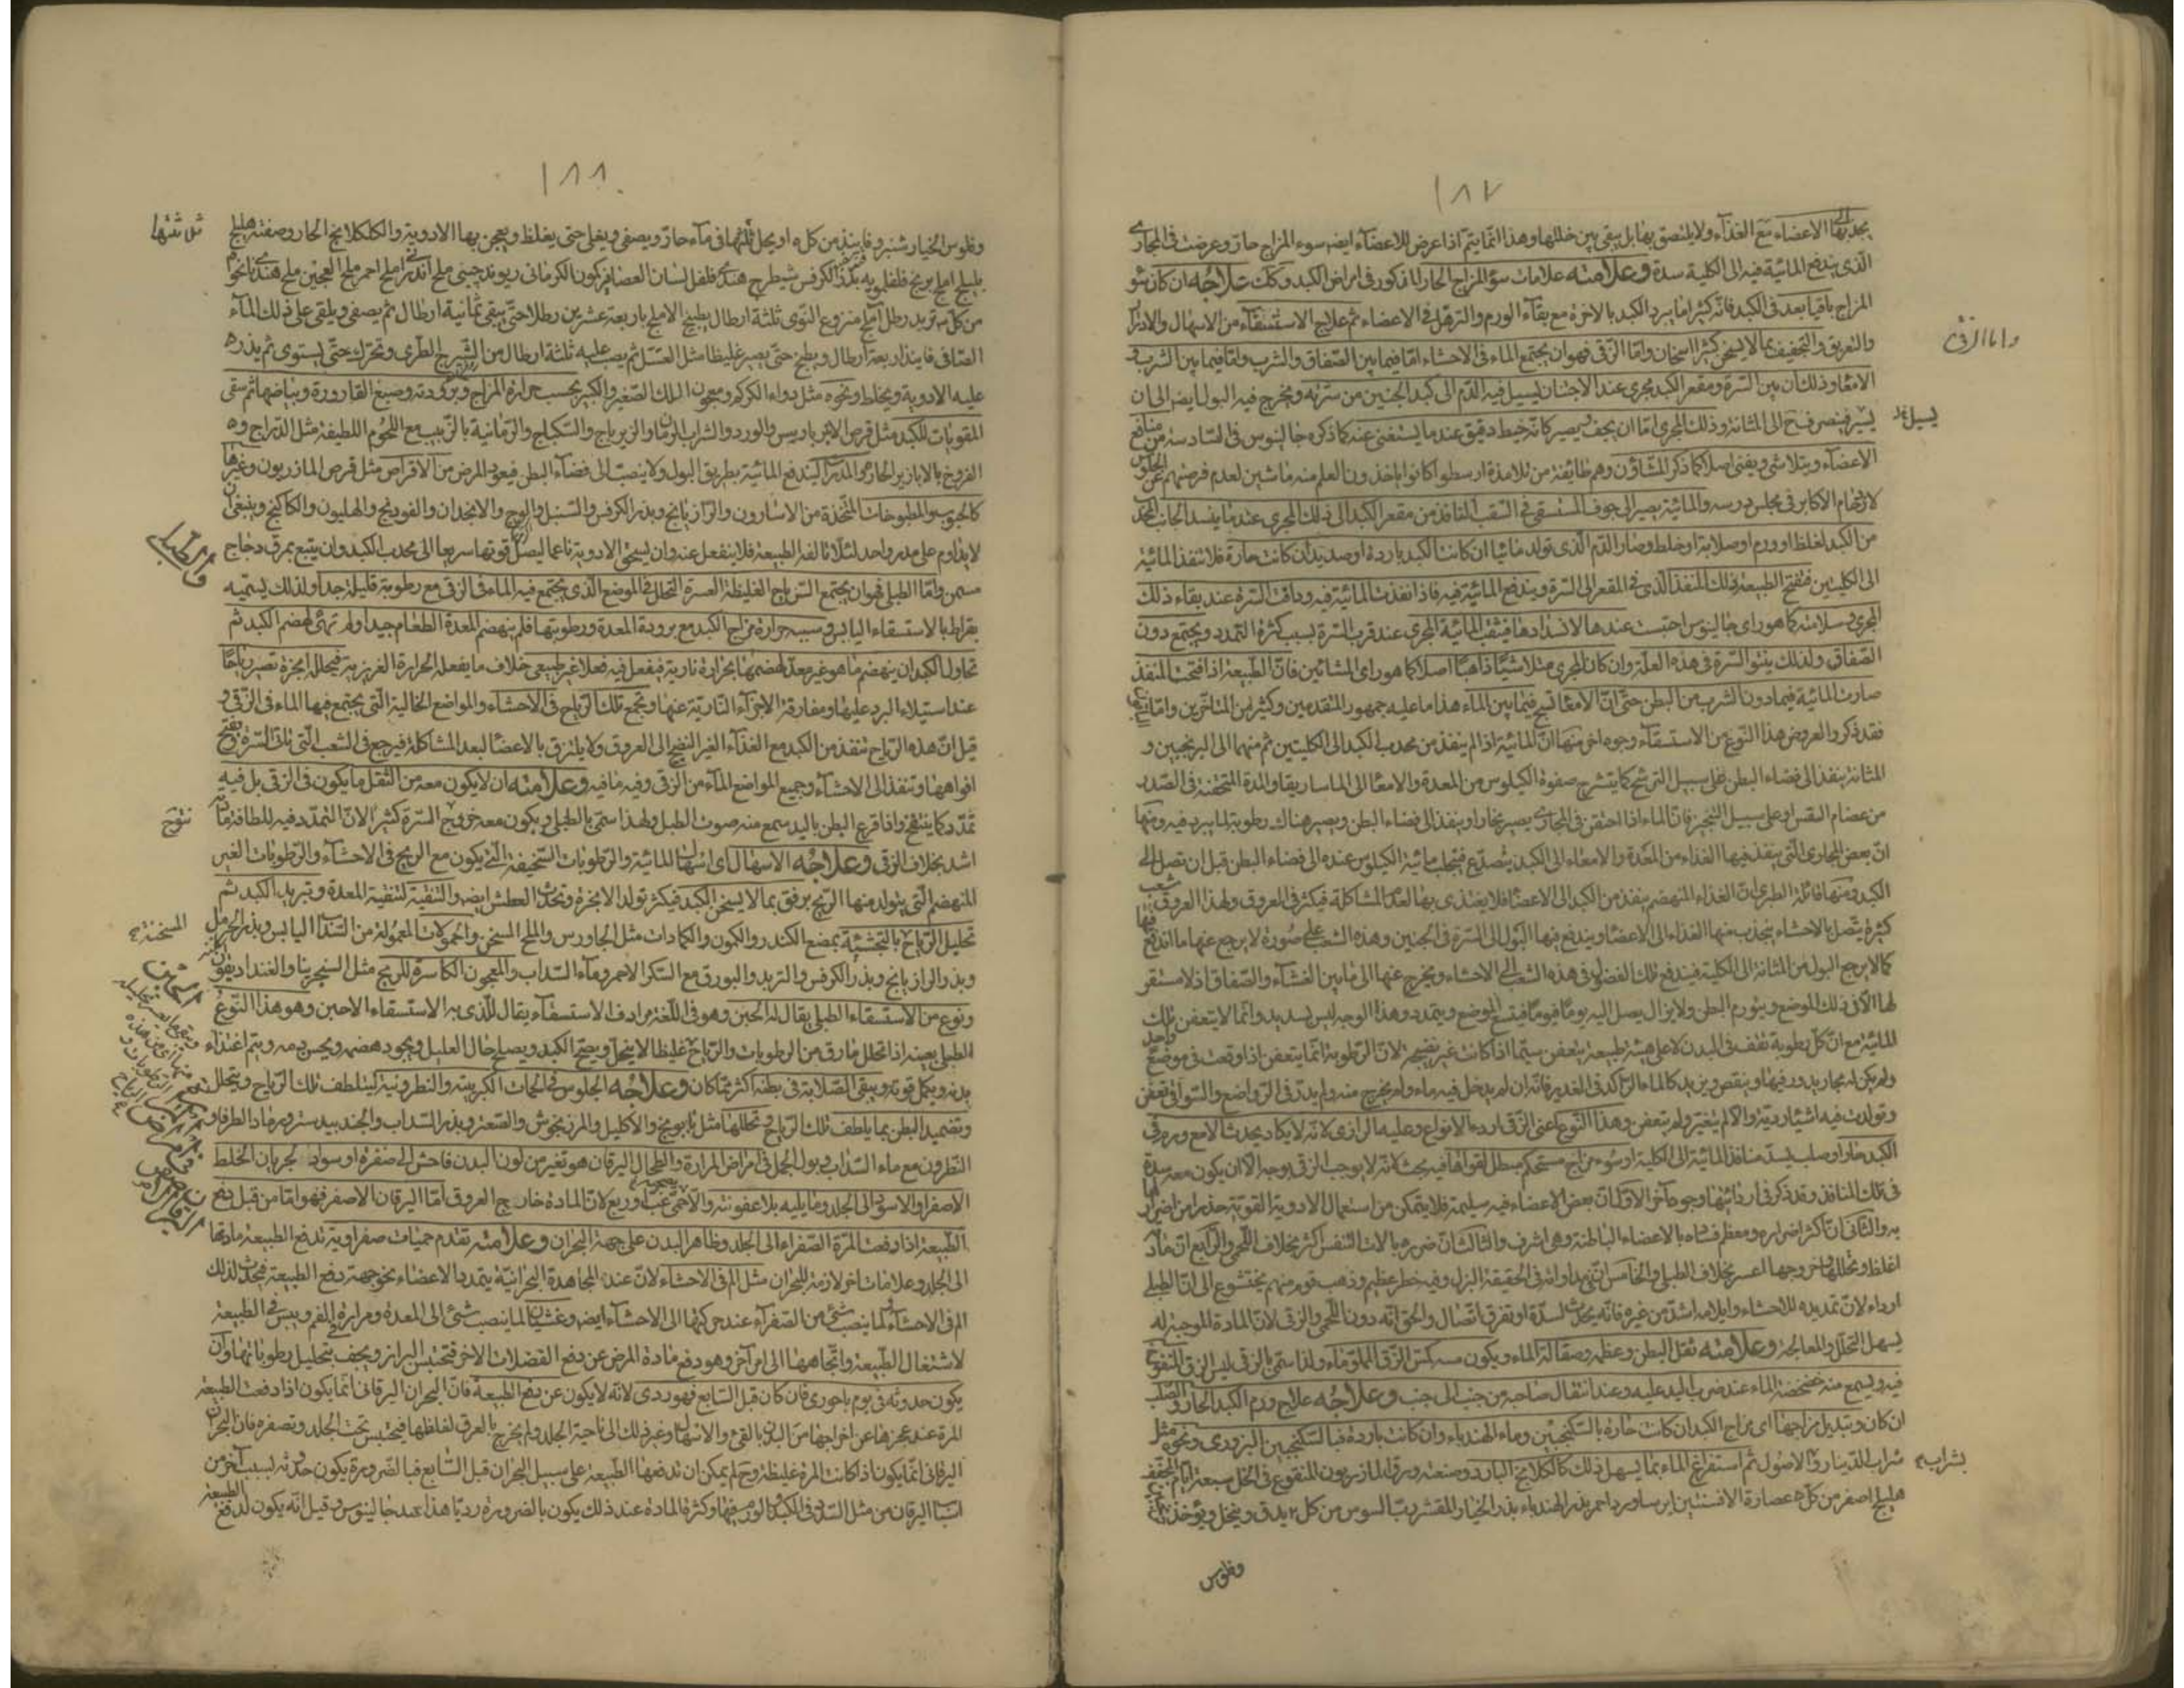 ١٨٧
يجذبها الاعضاء مع الغذاء ولا يلتصق بها بل يبقى بين خللها وهذا انما يتم اذا عرض للاعضاء ايضا سوء المزاج حار وعرضت فى المجارى
الذى يندفع المائية فيه الى الكلية سدة وعلامته علامات سوء المزاج الحار المذكور فى امراض الكبد وكك علاجه ان كان سوء
المزاج باقيا بعد فى الكبد فانه كثيرا ما يبرد الكبد بالاخرة مع بقاء الورم والترهل فى الاعضاء ثم علاج الاستسقاء من الاسهال والادرار
والتعريق والتجفيف بما لا يسخن كثير اسخان واما الزقى فهو ان يجتمع الماء فى الاحشاء اما فيما بين الصفاق والثرب واما فيما بين الثرب و
الامعاء وذلك ان بين السرة ومقعر الكبد مجرى عند الاجتنان ليسيل فيه الدم الى كبد الجنين من سرته ويخرج فيه البول ايضا الى ان
يسر فينصرف ح الى المثانة وذلك المجرى اما ان يجف ليصير كانه خيط دقيق عندما يستغنى عنه كما ذكره جالينوس فى السادسة من منافع
الاعضاء ويتلاشى ويفنى اصلا كما ذكر المشاؤن وهم طائفة من تلامذة ارسطو كانوا ياخذون العلم منه ماشين لعدم فرصتهم عن الجلوس
لازدحام الاكابر فى مجلس درسه والمائية يصير الى جوف المستسقى فى الثقب النافذ من مقعر الكبد الى ذلك المجرى عندما ينسد الجانب المحدب
من الكبد لغلظ او ورم او صلابة او خلط وصار الدم الذى تولد مائيا ان كانت الكبد باردة او صديديا ان كانت حارة فلا تنفذ المائية
الى الكليتين فتفتح الطبيعة ذلك المنفذ الذى فى المقعر الى السرة ويندفع المائية فيه فاذا نفذت المائية فيه ودافت السرة عند بقاء ذلك
المجرى وسلامته كما هو راى جالينوس احتبست عندها لانسدادها فيثقب المائية المجرى عند قرب السرة بسبب كثرة التمدد ويجتمع دون
الصفاق ولذلك ينتو السرة فى هذه العلة وان كان المجرى متلاشيا ذاهبا اصلا كما هو راى المشائين فان الطبيعة اذا فتحت المنفذ
صارت المائية فيما دون الثرب من البطن حتى ان الامعاء تسبح فيما بين الماء هذا ما عليه جمهور المتقدمين وكثير من المتاخرين واما
فقد ذكروا لعروض هذا النوع من الاستسقاء وجوه اخر منها ان المائية اذا لم ينفذ من محدب الكبد الى الكليتين ثم منهما الى البربخين و
المثانة ينفذ الى فضاء البطن على سبيل الترشح كما يترشح صفوة الكيلوس من المعدة والامعاء الى الماساريقا والمدة المتحقنة فى الصدر
من عضام القس او على سبيل التبخير فان الماء اذا احتقن فى المجارى يصير بخارا وينفذ الى فضاء البطن ويصير هناك رطوبة لما يبرد فيه ومنها
ان بعض المجارى التى ينفذ فيها الغذاء من المعدة والامعاء الى الكبد يتصدع فيتحلب مائية الكيلوس عنده الى فضاء البطن قبل ان تصل الى
الكبد ومنها قاله الطبرى ان الغذاء المنهضم ينفذ من الكبد الى الاعضاء فلا يغتذى بها لعدم المشاكلة فيكثر فى العروق ولهذا العروق شعب
كثيرة يتصل بالاحشاء ينجذب منها الغذاء الى الاعضاء ويندفع فيها البول الى السرة فى الجنين وهذه الشعب على صورة لا يرجع عنها ما اندفع فيها
كما لا يرجع البول من المثانة الى الكلية فيندفع تلك الفضول فى هذه الشعب الى الاحشاء ويخرج عنها الى ما بين الغشاء والصفاق اذ لا مستقر
لها الا فى ذلك الموضع ويتورم البطن ولا يزال يصل اليه يوما فيوما فيتسع الموضع ويتمدد وهذا الوجه ليس بسديد وانما لا يتعفن تلك
المائية مع ان كل رطوبة تقف فى البدن لا على هيئة طبيعية يتعفن سيما اذا كانت غير نضيجة لان الرطوبة انما يتعفن اذا وقعت فى موضع واحد
ولم يكن له مجار يدور فيها وينقص ويزيد كالماء الراكد فى الغدير فانه ان لم يدخل فيه ماء ولم يخرج منه ولم يدر فى الرواضع والسواقى تعفن
وتولدت فيه اشياء ردية والا لم يتغير ولم يتعفن وهذا النوع اعنى الزقى اردء الانواع وعليه الرازى لانه لا يكاد يحدث الا مع ورم فى
الكبد حار او صلب يسد منافذ المائية الى الكلية او سوء مزاج مستحكم مبطل لقواها فيه بحث لانه لا يوجب الزقى بوجه الا ان يكون معه سدة
فى تلك المنافذ وقد ذكر فى ردائتها وجوها اخر الاول ان بعض الاعضاء فيه سليمة فلا يتمكن من استعمال الادوية القوية حذرا من اضرارها
به والثانى ان اكثر اضراره ومعظم فساده بالاعضاء الباطنة وهى اشرف والثالث ان ضرره بالات التنفس اكثر بخلاف اللحمى والرابع ان مادته
اغلظ وتحللها وخروجها اعسر بخلاف الطبلى والخامس ان مداواته فى الحقيقة البزل وفيه خطر عظيم وذهب قوم منهم بختيشوع الى ان الطبلى
ارداء لان تمديده للاحشاء وايلامه اشد من غيره فانه يحدث لسدة او تفرق اتصال والحق انه دون اللحمى والزقى لان المادة الموجبة له
يسهل التحلل والمعالجة وعلامته ثقل البطن وعظمه وصقالة الماء ويكون مسه كمس الزق المملو ماء ولذا سمى بالزقى ليس الزق المنفوخ
فيه ويسمع منه خضخضة الماء عند ضرب اليد عليه وعند انتقال صاحبه من جنب الى جنب وعلاجه علاج ورم الكبد الحار والصلب
ان كان وتبديل مزاجها اى مزاج الكبد ان كانت حارة بالسكنجبين وماء الهندباء وان كانت باردة فبالسكنجبين البزورى ونحوه مثل
شراب الدينار والاصول ثم استفراغ الماء بما يسهل ذلك كالكلكلانج البارد وصنعته ورق المازريون المنقوع فى الخل سبعة ايام المجفف
هليلج اصفر من كل ٥ عصارة الافسنتين ايرسا ورد احمر بذر الهندباء بذر الخيار المقشر رب السوس من كل ٢ يدق وينخل ويؤخذ
واما الزقى
يسيل
شراب
وفلوس
١٨٨
وفلوس الخيار شنبر وفانيذ من كل ٥ او يحل ثلثها فى ماء حار ويصفى ويغلى حتى يغلظ ويعجن بها الادوية والكلكلانج الحار وصفته هليلج
بليلج املج برنج فلفلمويه بذر الكرفس شيطرج هندى فلفل لسان العصافير كمون الكرمانى ريوند چينى ملح اندرانى ملح احمر ملح العجين ملح هندى
من كل ٥ تربد رطل املج منزوع النوى ثلثة ارطال يطبخ الاملج باربعة عشرين رطلا حتى يبقى ثمانية ارطال ثم يصفى ويلقى على ذلك الماء
الصافى فانيذ اربعة ارطال ويطبخ حتى يصير غليظا مثل العسل ثم يصب عليه ثلثة ارطال من الشيرج الطرى وتحرك حتى يستوى ثم يذر ه
عليه الادوية ويخلط ونحوه مثل دواء الكركم ومعجون الملك الصغير والكبير بحسب حرارة المزاج وبرودته وصبغ القارورة وبياضها ثم سقى
المقويات للكبد مثل قرص الانبرباريس والورد والشراب الرمان والزيرباج والسكباج والرمانية بالزبيب مع اللحوم اللطيفة مثل الدراج و ه
الفروخ بالابازير الحارة والمدرات ليندفع المائية بطريق البول ولا ينصب الى فضاء البطن فيعود المرض من الاقراص مثل قرص المازريون وغيرها
كالحبوب والمطبوخات المتخذة من الاسارون والرازيانج وبذر الكرفس والسنبل والوج والانجدان والفودنج والهليون والكاكنج وينبغى ان
لا يداوم على مدر واحد لئلا تالفه الطبيعة فلا ينفعل عنه وان يسحق الادوية ناعما ليصل قوتها سريعا الى محدب الكبد وان يتبع بمرق دجاج
مسمن واما الطبلى فهو ان يجتمع الرياح الغليظة العسرة التحلل فى الموضع الذى يجتمع فيه الماء فى الزقى مع رطوبة قليلة جدا ولذلك يسميه
بقراط بالاستسقاء اليابس وسببه حرارة مزاج الكبد مع برودة المعدة ورطوبتها فلم ينهضم المعدة الطعام جيدا ولم تهيئ لهضم الكبد ثم
تحاول الكبد ان ينهضم ما هو غير معد لهضمها بحرارة نارية فيفعل فيه فعلا غير طبيعى خلاف ما يفعله الحرارة الغريزية فيحلله ابخرة تصير رياحا
عند استيلاء البرد عليها ومفارقة الاجزاء النارية عنها وتجمع تلك الرياح فى الاحشاء والمواضع الخالية التى يجتمع فيها الماء فى الزقى و
قيل ان هذه الرياح تنفذ من الكبد مع الغذاء الغير النضيج الى العروق ولا يلتزق بالاعضاء لبعد المشاكلة فيرجع فى الشعب التى تاتى السرة ويفتح
افواهها وتنفذ الى الاحشاء وجميع المواضع الماء من الزقى وفيه ما فيه وعلامته ان لا يكون معه من الثقل ما يكون فى الزقى بل فيه
تمدد كما ينتفخ واذا قرع البطن باليد سمع منه صوت الطبل ولهذا سمى بالطبلى ويكون معه خروج السرة كثيرا لان التمدد فيه للطافة
اشد بخلاف الزقى وعلاجه الاسهال اى اسهال المائية والرطوبات السخيفة التى يكون مع الريح فى الاحشاء والرطوبات الغير
المنهضم التى يتولد منها الريح برفق بما لا يسخن الكبد فيكثر تولد الابخرة وتحدث العطش ايضه والتنقية لتنقية المعدة وتبريد الكبد ثم
تحليل الرياح بالتجشية بمضغ الكندر والكمون والكمادات مثل الجاورس والملح المسخن والحمولات المعمولة من السداب اليابس وبذر الحرمل
وبذر الرازيانج وبذر الكرفس والتربد والبورق مع السكر الاحمر وماء السداب والمعجون الكاسرة للريح مثل السنجرينا والغنداديقون
ونوع من الاستسقاء الطبلى يقال له الحبن وهو فى اللغة مرادف الاستسقاء يقال للذى به الاستسقاء الاحبن وهو هذا النوع
الطبلى بعينه اذا تحلل ما رق من الرطوبات والرياح غليظا لا ينحل ويصح الكبد ويصلح حال العليل ويجود هضمه ويحسن دمه ويتم اغتذاء
بدنه ويكمل قوته ويبقى الصلابة فى بطنه اكثر مما كان وعلاجه الجلوس فى الحمات الكبريتية والنطرونية ليتلطف تلك الرياح ويتحلل
وتضميد البطن بما يلطف تلك الرياح وتحللها مثل بابونج والاكليل والمرزنجوش والصعتر وبذر السداب والجندبيدستر ورماد الطرفا و
النطرون مع ماء السداب وبول الجمل فى امراض المرارة والطحال اليرقان هو تغير من لون البدن فاحش الى صفرة او سواد لجريان الخلط
الاصفر او الاسود الى الجلد وما يليه بلا عفونة والا لحمى غب او ربع لان المادة خارج العروق اما اليرقان الاصفر فهو اما من قبل دفع
الطبيعة اذا دفعت المرة الصفراء الى الجلد وظاهر البدن على جهة البحران وعلامته تقدم حميات صفراوية تدفع الطبيعة مادتها
الى الجلد وعلامات اخر لازمة للبحران مثل الم فى الاحشاء لان عند المجاهدة البحرانية يتمدد الاعضاء نحو جهة دفع الطبيعة فيحدث لذلك
الم فى الاحشاء ولما ينصب شئ من الصفراء عند حركتها الى الاحشاء ايضه وغثيان لما ينصب شئ الى المعدة ومرارة الفم ويبس فى الطبيعة
لاشتغال الطبيعة واتجاهها الى امر اخر وهو دفع مادة المرض عن دفع الفضلات الاخر فتحتبس البراز ويجف بتحليل رطوباتها وان
يكون حدوثه فى يوم باحورى فان كان قبل السابع فهو ردى لانه لا يكون عن دفع الطبيعة فان البحران اليرقانى انما يكون اذا دفعت الطبيعة
المرة عند عجزها عن اخراجها من البدن بالقئ والاسهال وغير ذلك الى ناحية الجلد ولم يخرج بالعرق لغلظها فيحتبس تحت الجلد وتصفره فان البحران
اليرقانى انما يكون اذا كانت المرة غليظة وح لم يمكن ان تدفعها الطبيعة على سبيل البحران قبل السابع فبالضرورة يكون حدوثه لسبب اخر من
اسباب اليرقان من مثل السدد فى الكبد او لورم فيها وكثرة المادة عند ذلك يكون بالضرورة رديا هذا عند جالينوس وقيل انه يكون لدفع الطبيعة
ثل ثلثها
واما الطبلى
نتوج
المسخنة
فى امراض
اليرقان